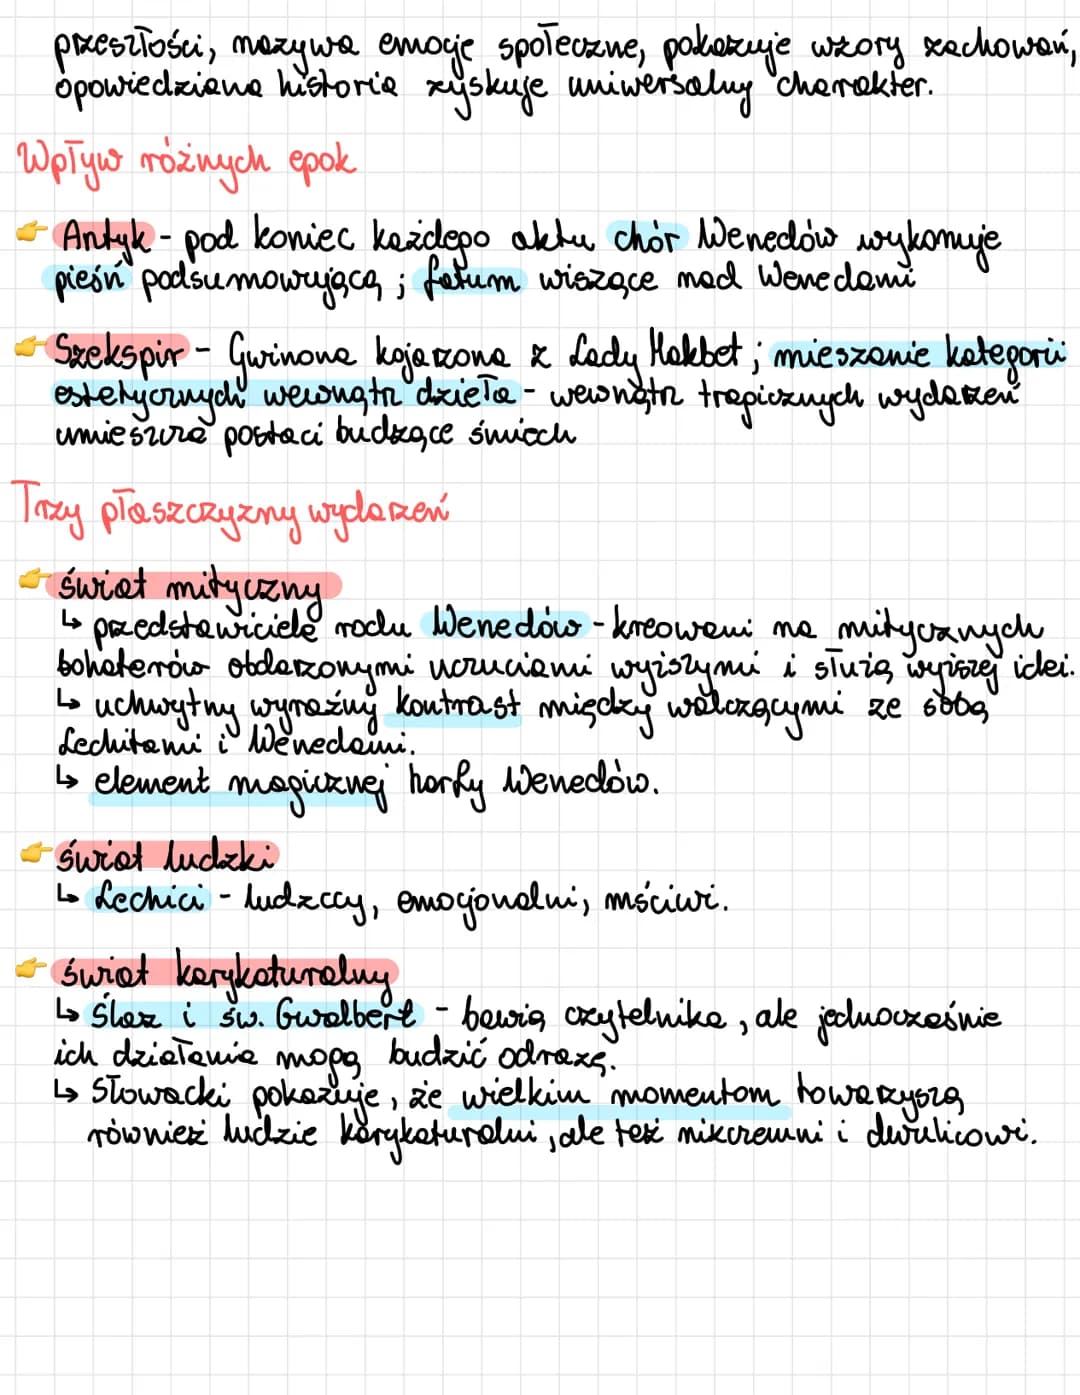 przeszłości, nazywa emocje społeczne, pokazuje wzory zachowań,
opowiedziana historia zyskuje uniwersalny charakter.
Wpływ różnych epok
👉 Antyk - pod koniec każdego aktu chór Wenedów wykonuje
pieśń podsumowującą ; fatum wiszące nad Wenedami
👉 Szekspir - Gwinona kojarzona z Lady Makbet ; mieszanie kategorii
estetycznych wewnątrz dzieła - wewnątrz tragicznych wydarzeń
umieszcza postaci budzące śmiech
Trzy płaszczyzny wydarzeń
👉 świat mityczny
↳ przedstawiciele rodu Wenedów - kreowani na mitycznych
bohaterów obdarzonymi uczuciami wyższymi i służą wyższej idei.
↳ uchwytny wyraźny kontrast między walczącymi ze sobą
Lechitami i Wenedami.
↳ element magicznej harfy Wenedów.
👉 świat ludzki
↳ Lechici - ludzccy, emocjonalni, mściwi.
👉 świat karykaturalny
↳ Ślaz i św. Gwalbert - bawią czytelnika, ale jednocześnie
ich działania mogą budzić odrazę.
↳ Słowacki pokazuje, że wielkim momentom towarzyszą
również ludzie karykaturalni, ale też nikczemni i dwulicowi.